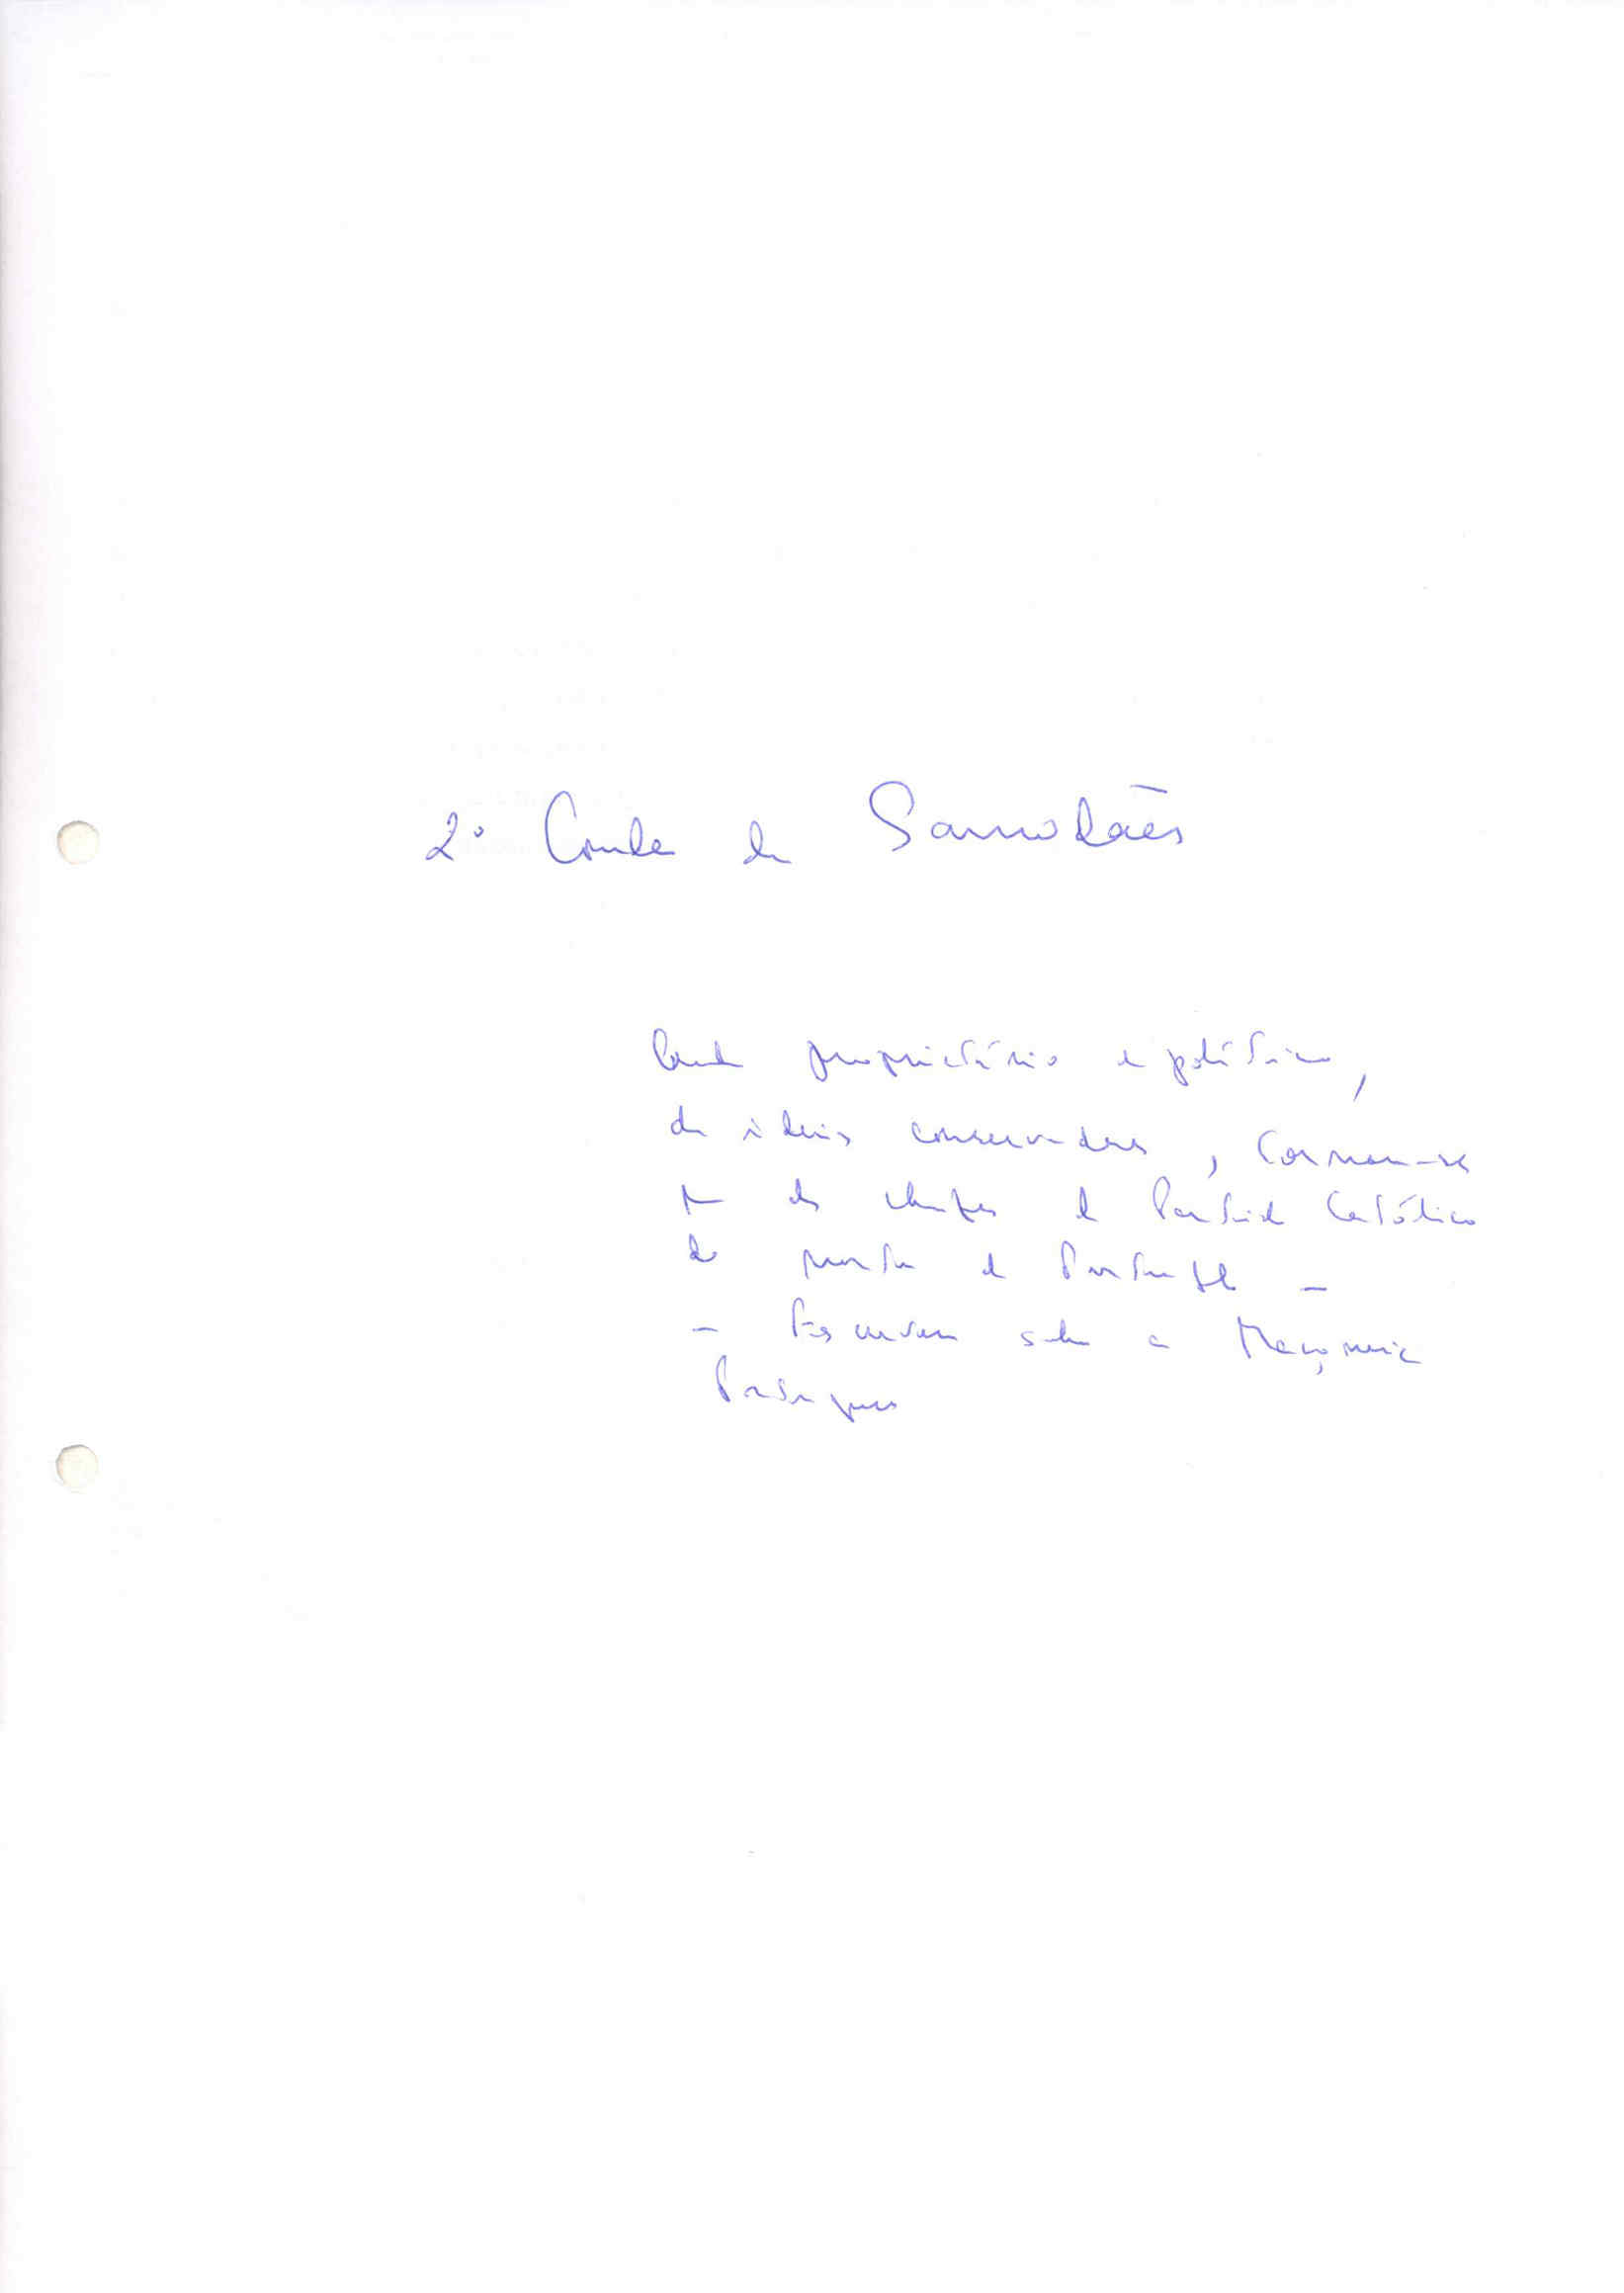 2º Conde de Samodães
proprietário e político,
de ideias conservadoras, tornou-se
um dos chefes do Partido Católico
do norte de Portugal -
- Escreveu sobre a Maçonaria
Portuguesa